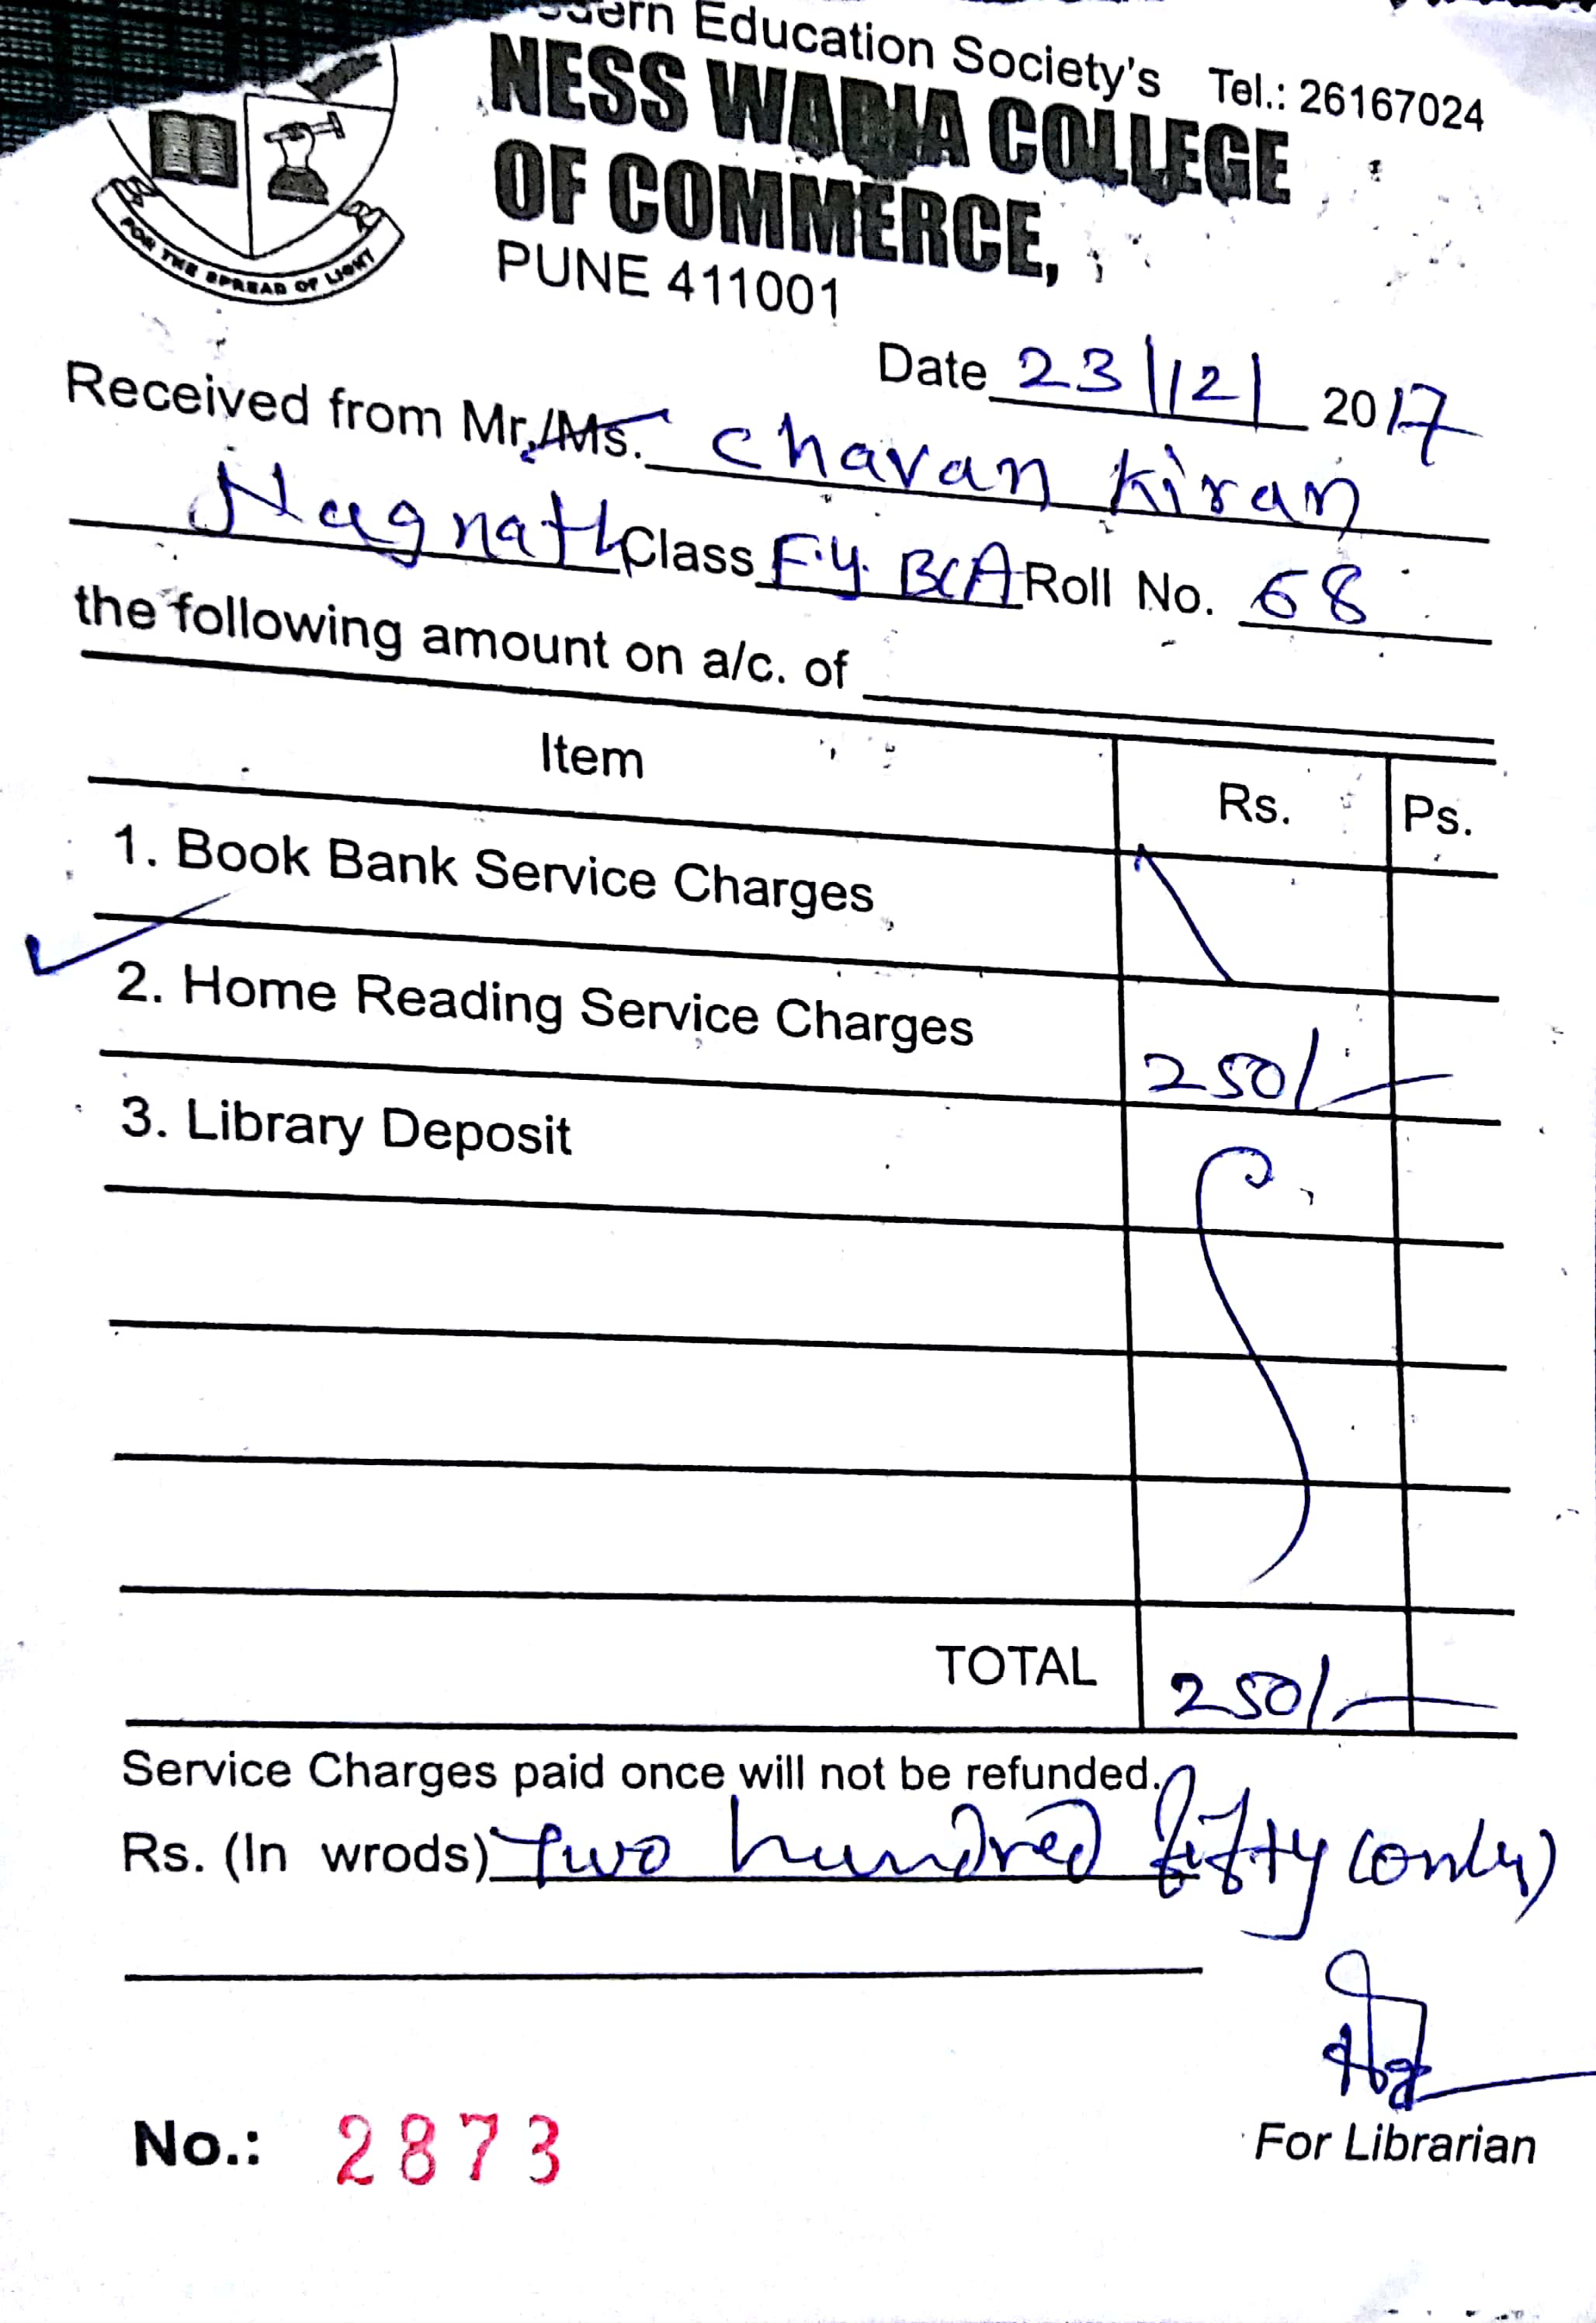 Education Society's Tel.: 26167024
NESS WADIA COLLEGE
OF COMMERCE,
PUNE 411001
FOR THE SPREAD OF LIGHT
Date 23/12/ 2017
Received from Mr./Ms. Chavan Kiran
Nagnath Class F.Y. BCA Roll No. 68
the following amount on a/c. of
Item Rs. Ps.
1. Book Bank Service Charges
2. Home Reading Service Charges 250/-
3. Library Deposit
TOTAL 250/-
Service Charges paid once will not be refunded.
Rs. (In wrods) Two hundred fifty (only)
For Librarian
No.: 2873